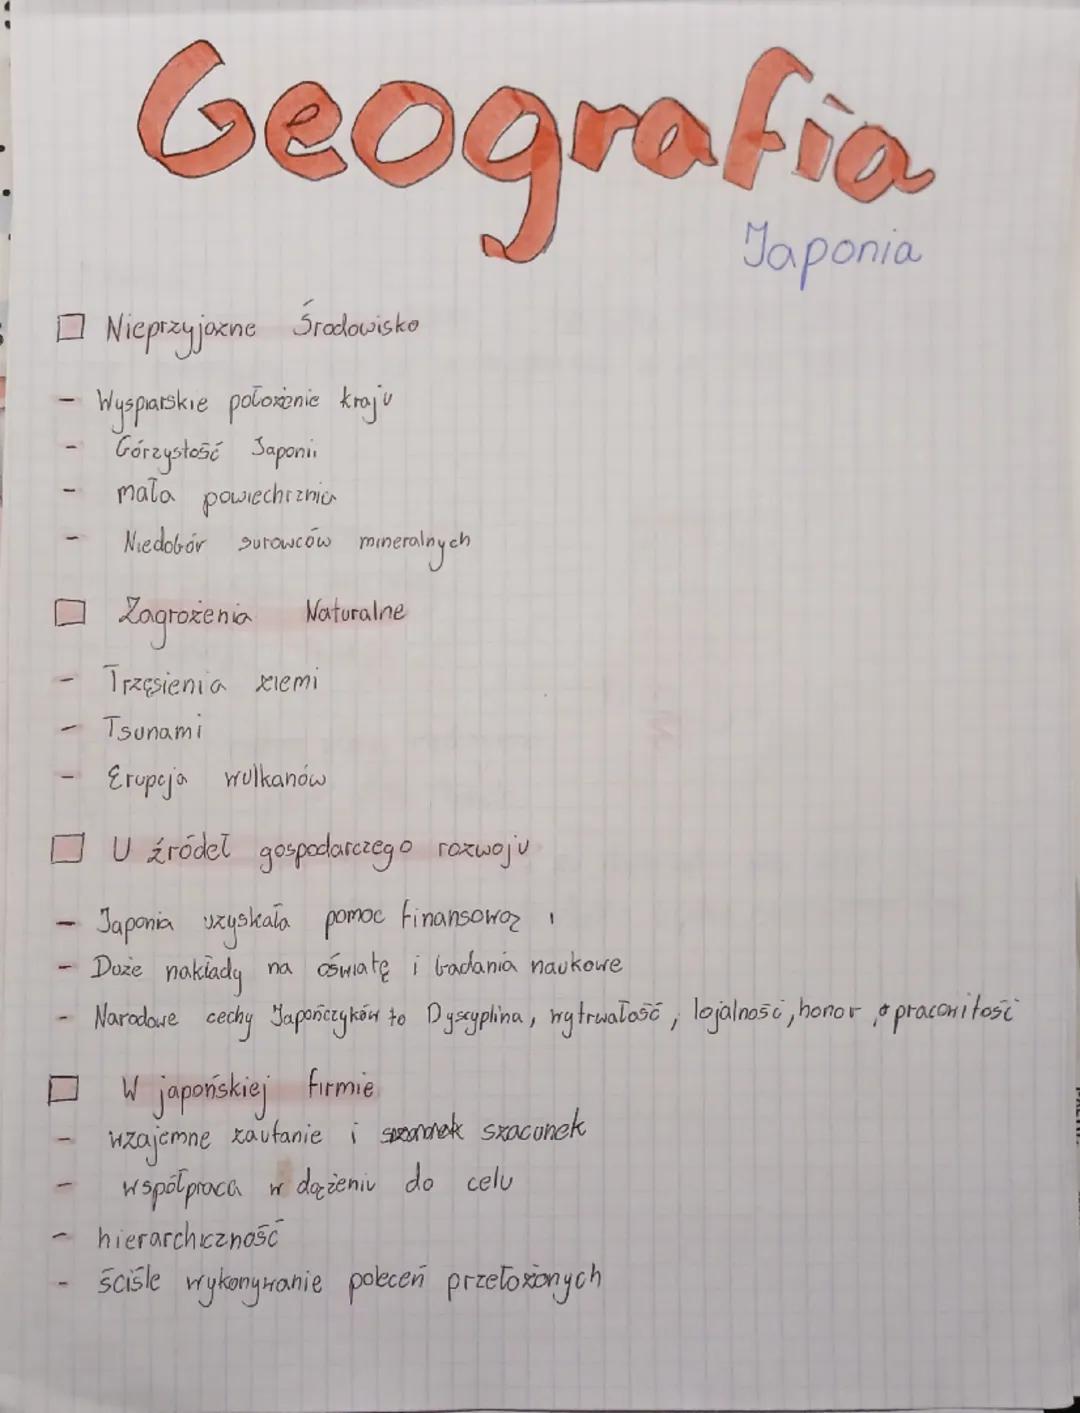 Geografia
Japonia
Nieprzyjazne Środowisko
- Wyspiarskie położenie kraju
- Górzystość Japonii
- mała powiechrznia
- Niedobór surowców mineralnych
Zagrożenia Naturalne
- Trzęsienia ziemi
- Tsunami
- Erupcja wulkanów
U źródeł gospodarczego rozwoju
- Japonia uzyskała pomoc finansową i
- Duże nakłady na oświatę i badania naukowe
- Narodowe cechy Japończyków to Dyscyplina, wytrwałość, lojalność, honor, pracowitość
W japońskiej firmie
- wzajemne zaufanie i szacunek
- współpraca w dążeniu do celu
- hierarchiczność
- ściśle wykonywanie poleceń przełożonych